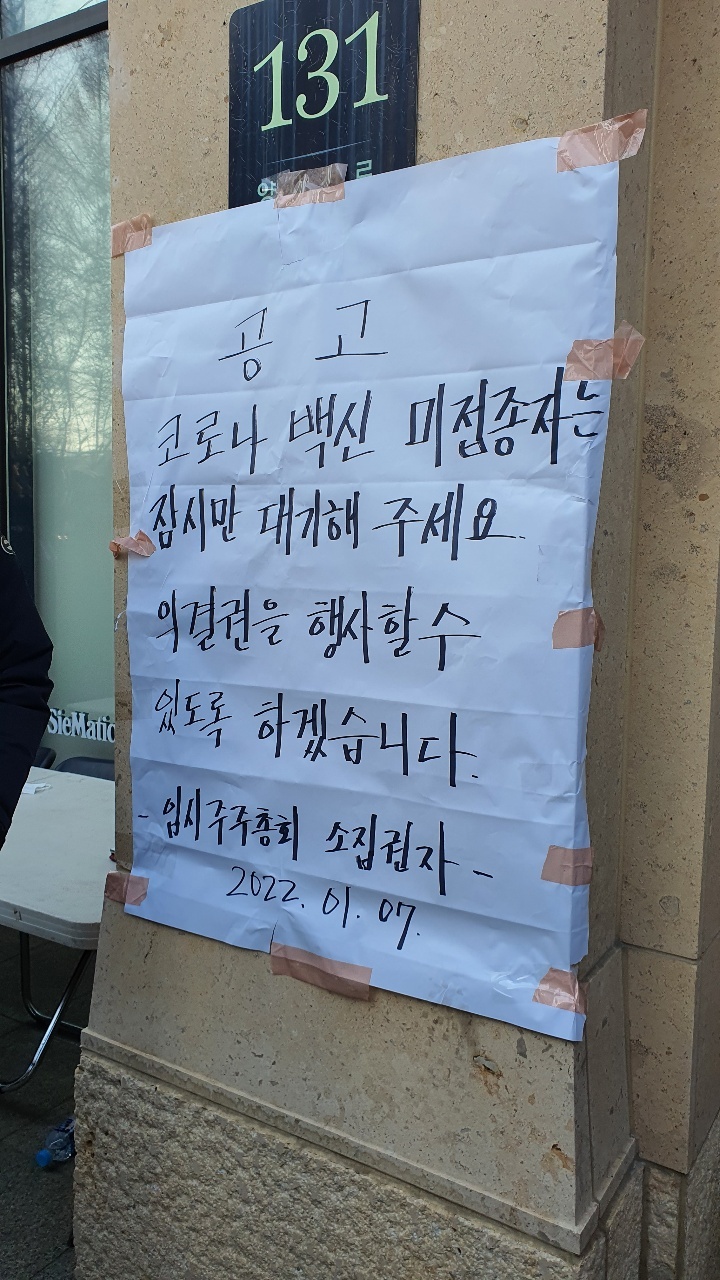 131
공고
코로나 백신 미접종자는
잠시만 대기해 주세요.
의결권을 행사할 수
있도록 하겠습니다.
- 임시주주총회 소집권자 -
2022. 01. 07.
SieMatic